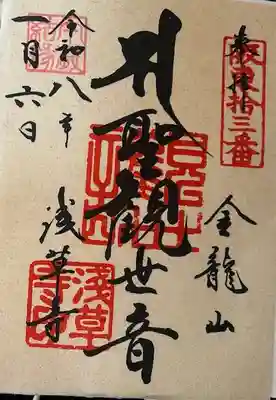 奉拝
坂東拾三番
聖観世音
金龍山
浅草寺
令和八年
一月六日